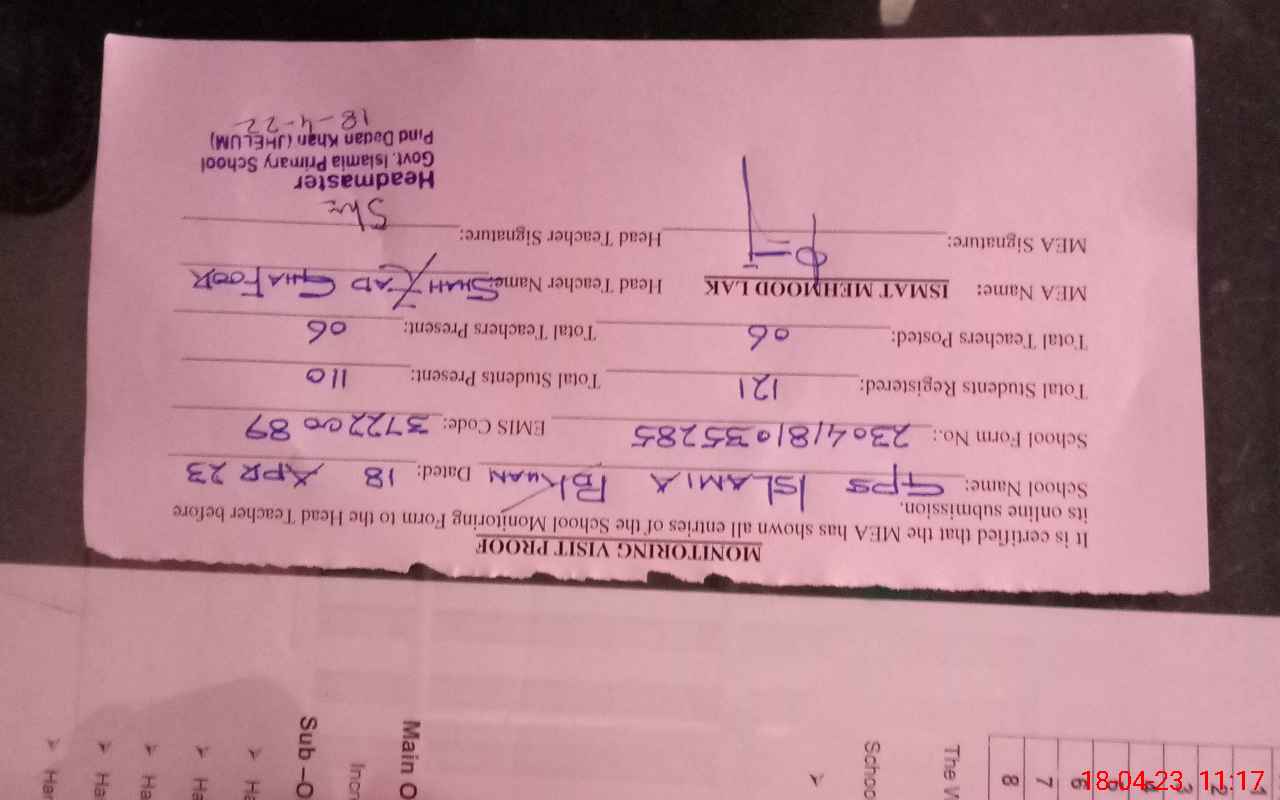 MONITORING VISIT PROOF
It is certified that the MEA has shown all entries of the School Monitoring Form to the Head Teacher before
its online submission.
School Name: GPS ISLAMIA PDKHAN Dated: 18 APR 23
School Form No.: 2304181035285 EMIS Code: 37220089
Total Students Registered: 121 Total Students Present: 110
Total Teachers Posted: 06 Total Teachers Present: 06
MEA Name: ISMAT MEHMOOD LAK Head Teacher Name: SHAHZAD GHAFOOR
MEA Signature: Head Teacher Signature:
Headmaster
Govt. Islamia Primary School
Pind Dadan Khan (JHELUM)
18-4-22
Main O
Sub -O
Incr
Ha
Ha
Ha
Ha
Har
The W
Schoo
1
2
3
4
5
6
7
8
18-04-23 11:17